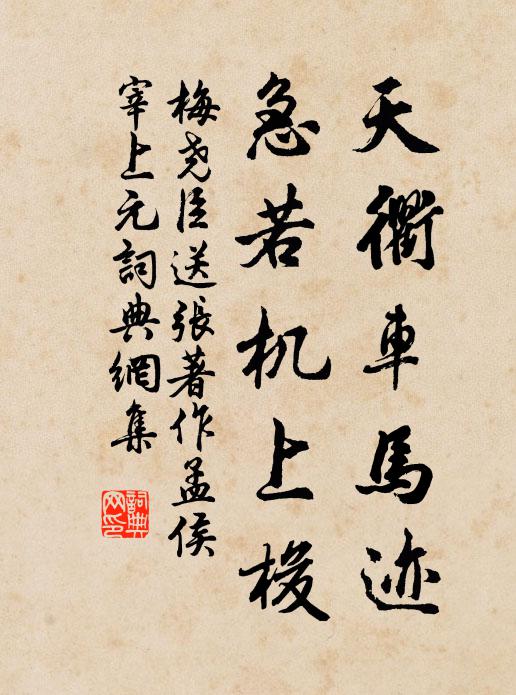 天衢車馬迹
急若机上梭
梅尧臣送張著作孟侯
宰上元詞典網集
詞典
网印